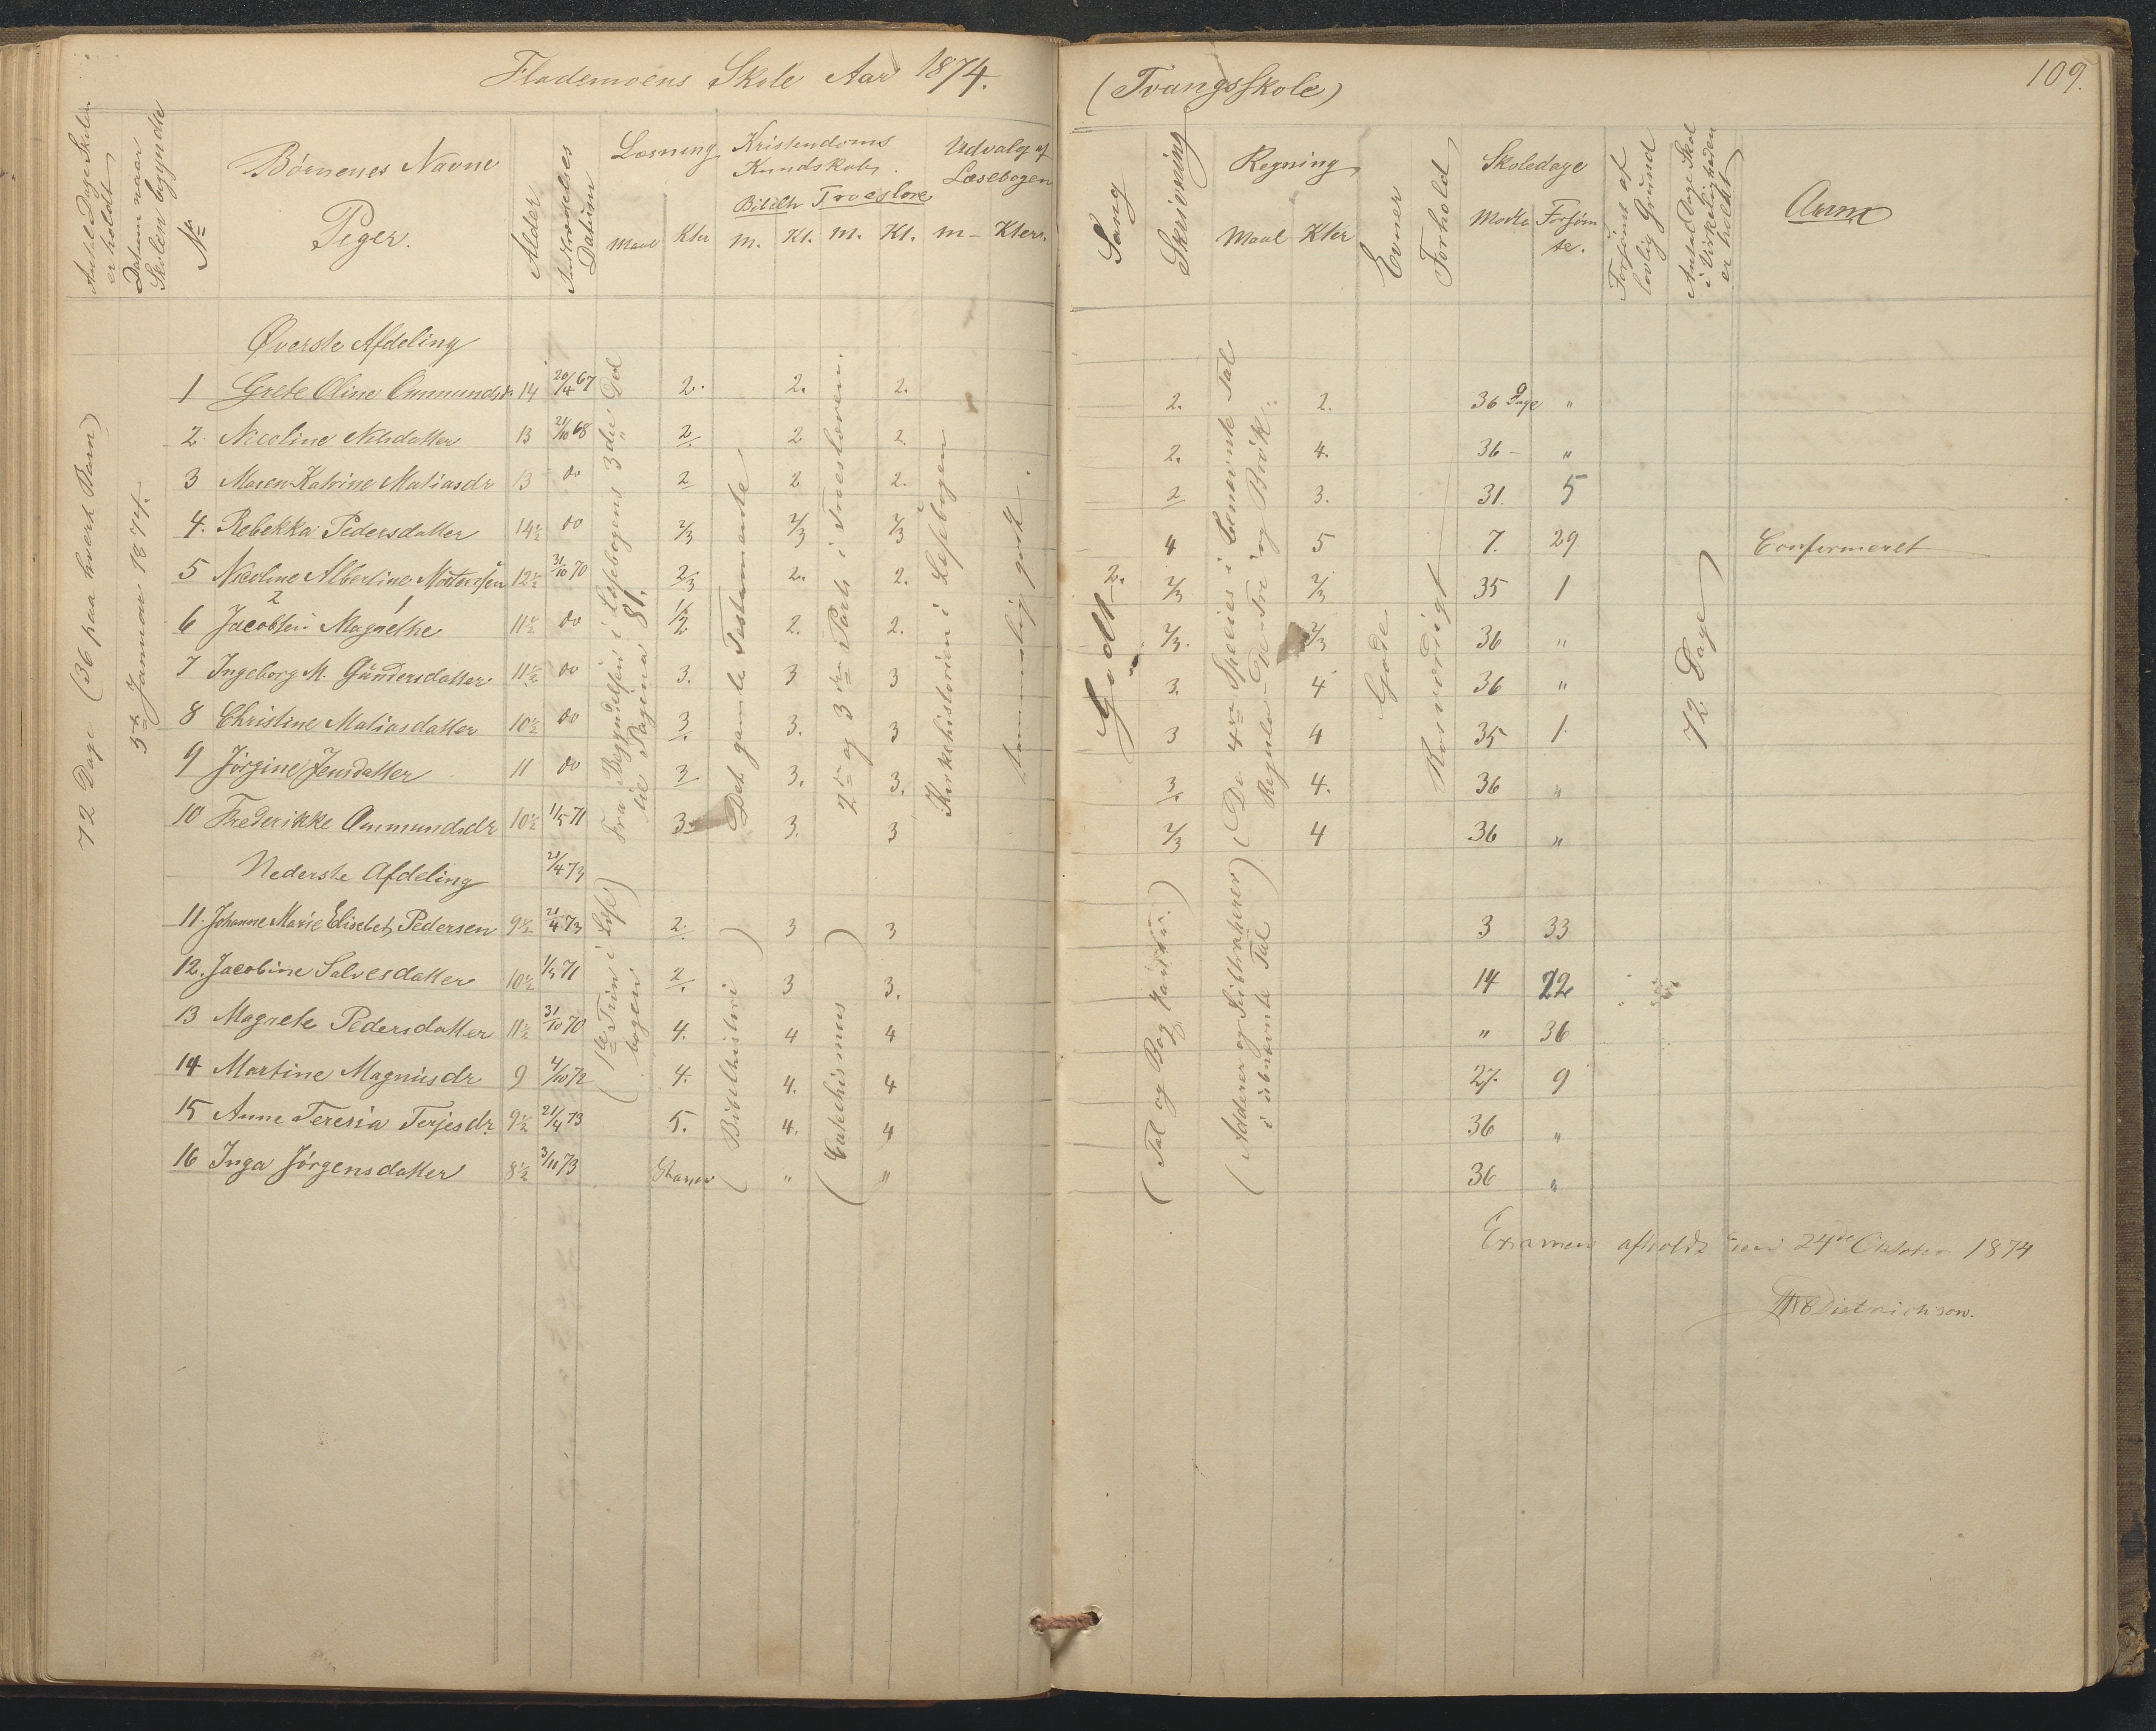 Flademoens Skole Aar 1874. (Tvangsskole) 109.
Antal Dage Skolen er holdt
Datum naar Skolen begyndte
No
Børnenes Navne
Piger.
Alder
Indtrædelses Datum
Læsning
Maal Kter
Kristendoms Kundskab.
Bibelh. Troeslære
m. Kt. m. Kt.
Udvalg af Læsebogen
m- Kter.
Sang
Skrivning
Regning
Maal Kter
Evner
Forhold
Skoledage
Mødte Forsømte.
Forsømt af lovlig Grund
Antal Dage Skol i Virkeligheden er holdt
Anm
72 Dage (36 paa hvert Barn)
5te Januar 1874.
Øverste Afdeling
1 Grete Oline Ommundsdr 14 20/4 67 2. 2. 2. 2. 2. 36 Dage "
2 Nicoline Nilsdatter 13 21/10 68 2 2 2. 2. 4. 36 - "
3 Maren Katrine Matiasdr 13 do 2 2 2. 2 3. 31. 5
4. Rebekka Pedersdatter 14½ do 2/3 2/3 2/3 4 5 7. 29 Confirmeret
5 Nicoline Albertine Mortensen 12½ 31/10 70 2/3 2. 2. 2/3 2/3 35 1
6 Jacobsen 2 Magnethe 1 11½ do 1/2 2. 2. 2/3. 2/3 36 "
7 Ingeborg M. Gundersdatter 11½ do 3. 3 3 3. 4 36 "
8 Christine Matiasdatter 10½ do 3. 3. 3 3 4 35 1.
9 Jørgine Jensdatter 11 do 3. 3. 3. 3. 4. 36 "
10 Frederikke Ommundsdr 10½ 1/5 71 3. 3. 3 2/3 4 36 "
Fra Begyndelsen i Læsebogens 3die Del til Pagina 81.
Det gamle Testamente
2den og 3die Parti i Troeslæren.
Kirkehistorien i Læsebogen
temmelig godt.
Godt 2.
(De 4re Species i benævnte Tal
Regula-De-Tri og Brøk.
Gode
Rosværdigt
72 Dage
Nederste Afdeling 21/4 73
11. Johanne Marie Elisebet Pedersen 9½ 21/4 73 2. 3 3 3 33
12. Jacobine Salvesdatter 10½ 1/5 71 2. 3 3. 14 22
13 Magnete Pedersdatter 11½ 31/10 70 4. 4 4 " 36
14 Martine Magnusdr 9 4/10 72 4. 4. 4 27. 9
15 Anne Teresia Terjesdr. 9½ 21/4 73 5. 4. 4 36 "
16 Inga Jørgensdatter 8½ 3/11 73 Staver " " 36 "
(1ste Trin i Læsebogen)
(Bibelhistori)
(Catechismus)
(Tal og Bogstaver.)
(Adderer og Subtraherer)
i ubenævnte Tal
Examen afholdt den 24de Oktober 1874
Dietrichson.